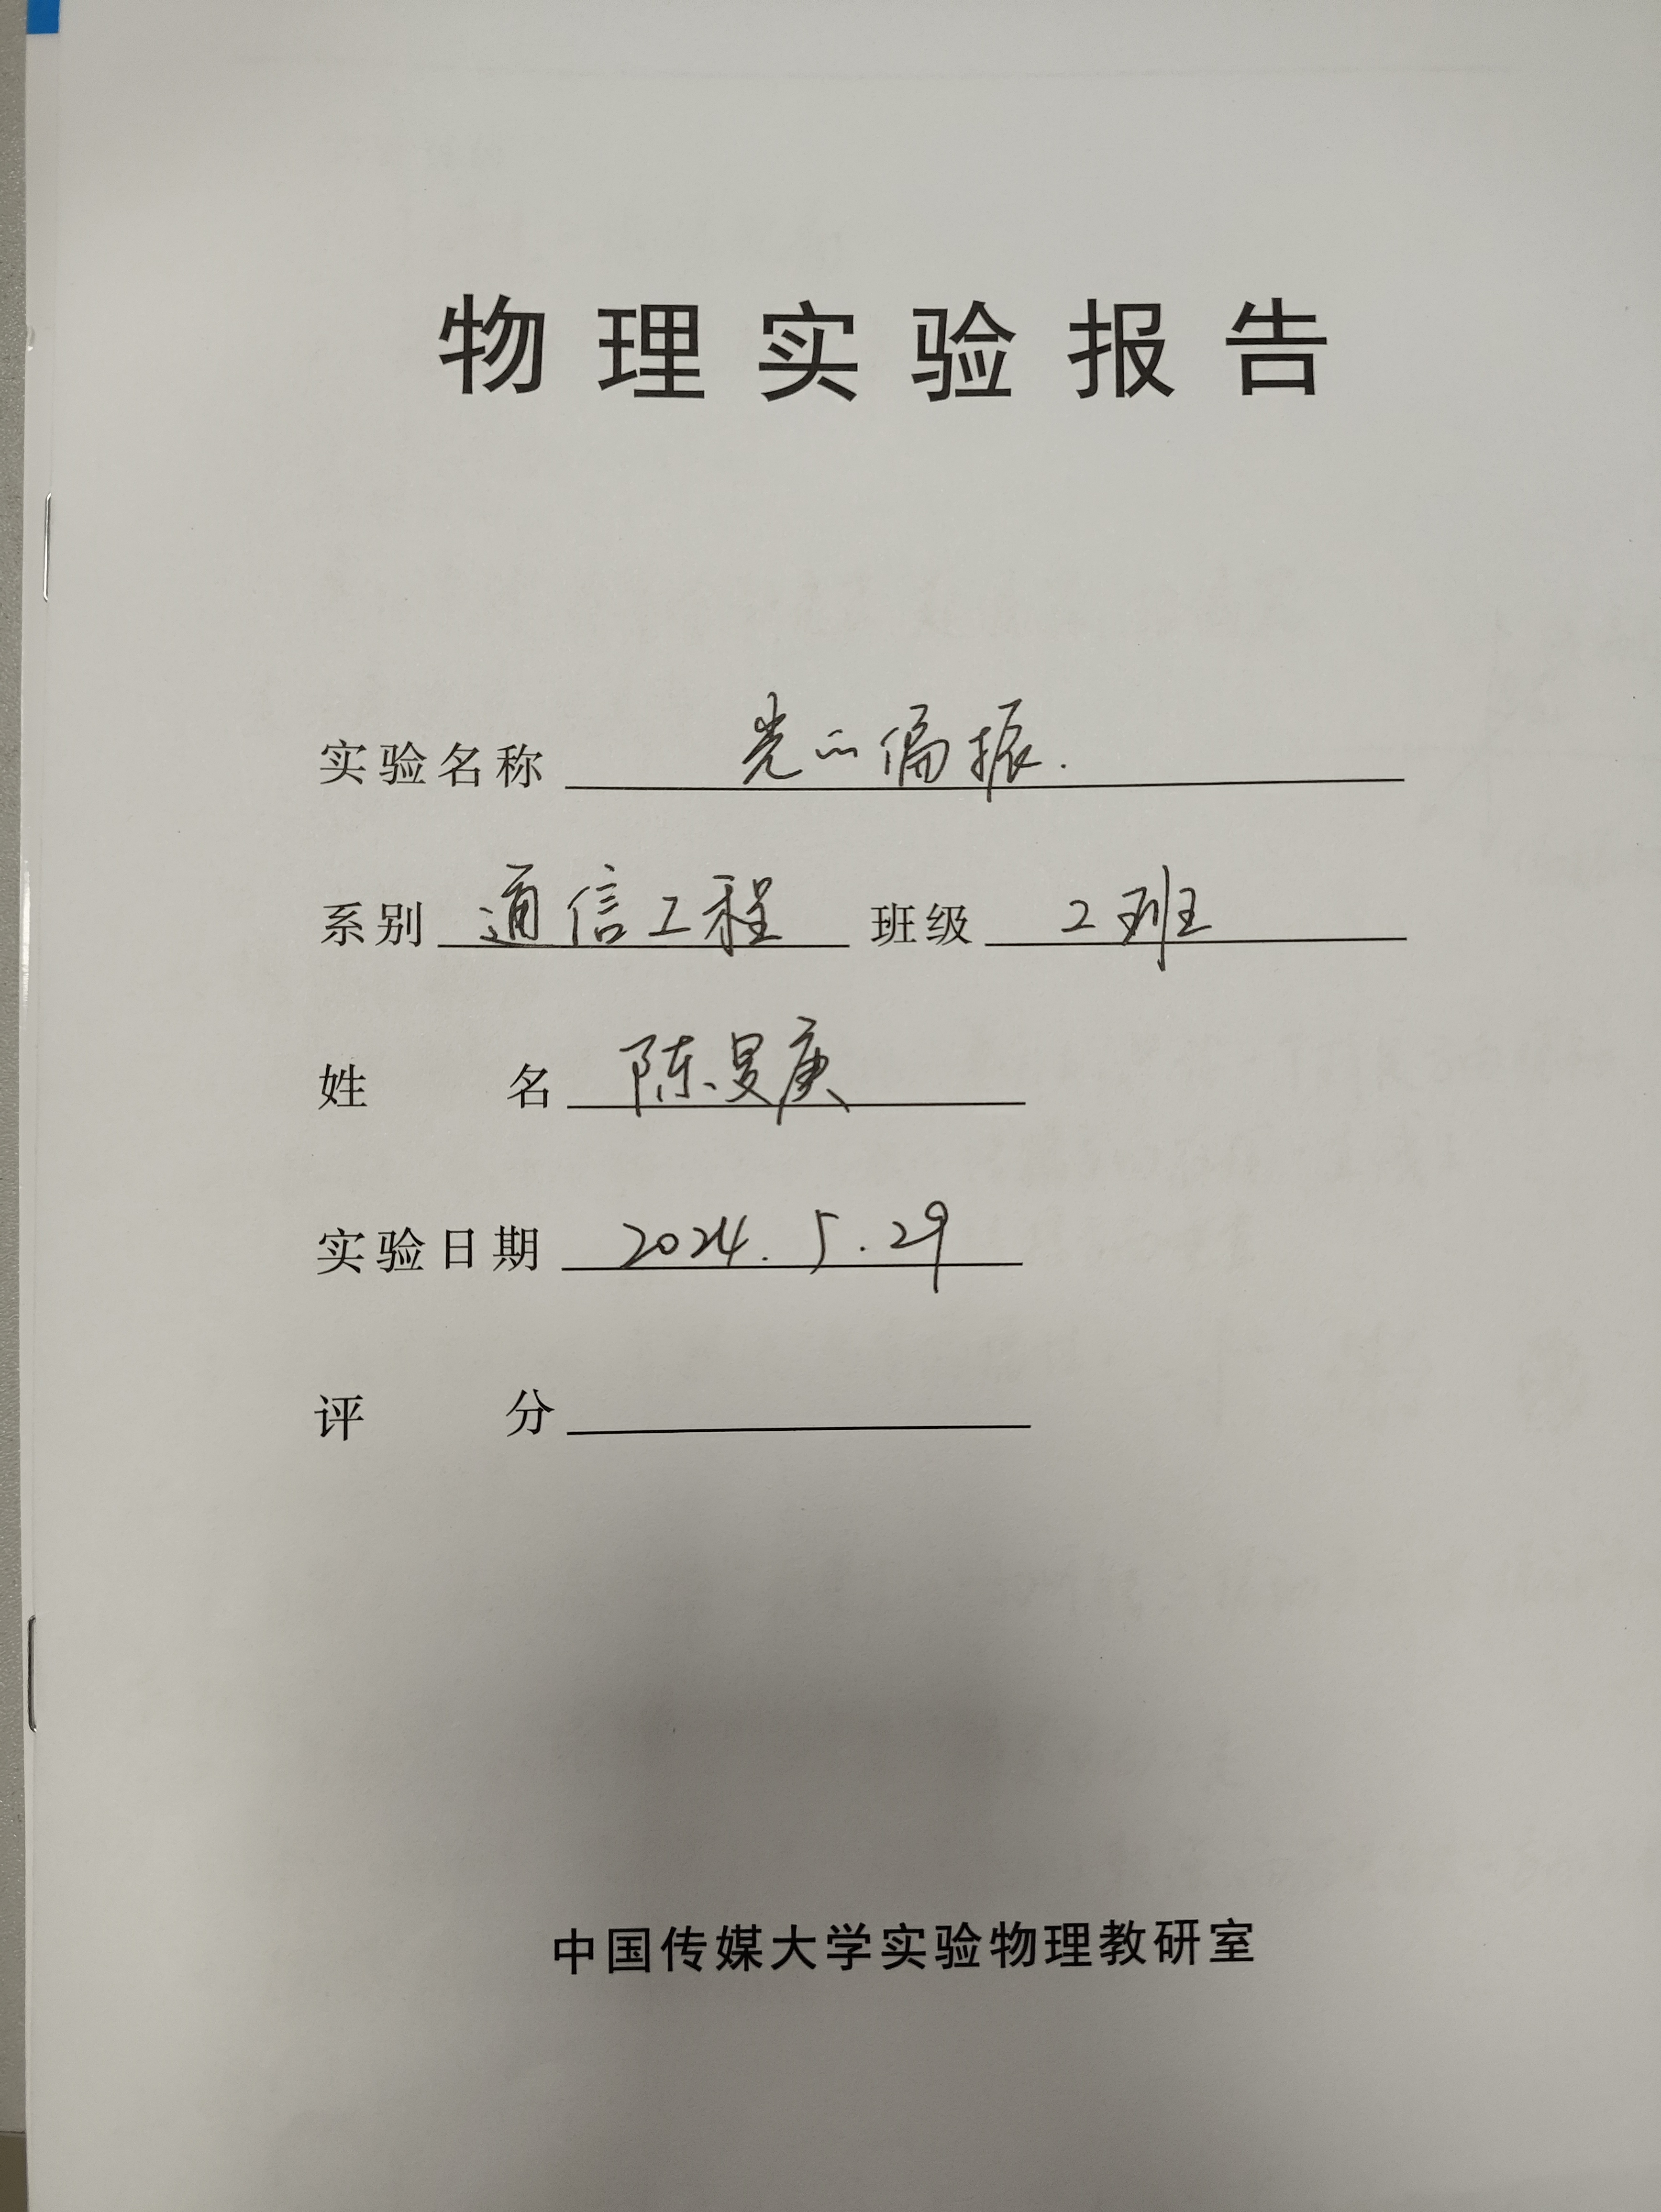 物理实验报告
实验名称 光的偏振.
系别 通信工程 班级 2班
姓名 陈旻庚
实验日期 2024.5.29
评分
中国传媒大学实验物理教研室